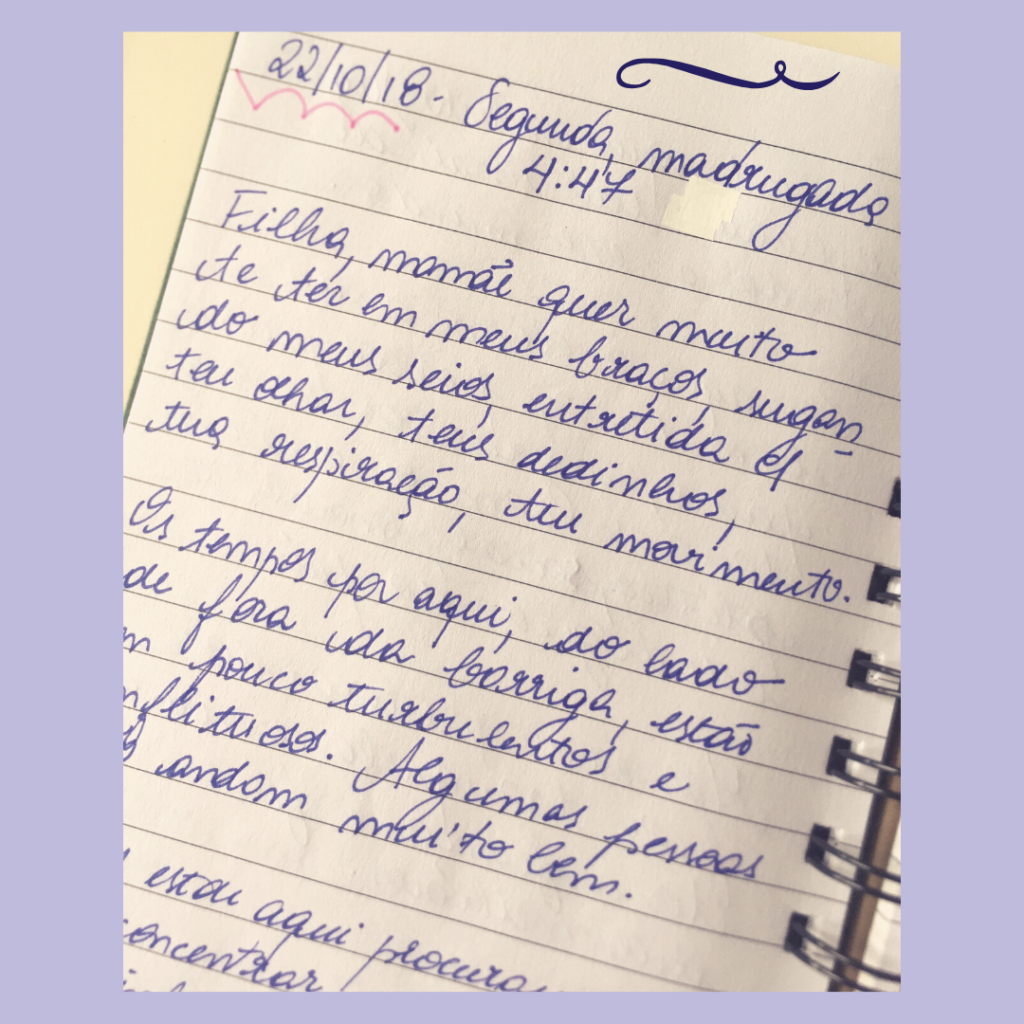 22/10/18 - Segunda, madrugada
4:47
Filha, mamãe quer muito
te ter em meus braços, sugan-
do meus seios, entretida c/
teu olhar, teus dedinhos,
tua respiração, teu movimento.
Os tempos por aqui, do lado
de fora da barriga, estão
m pouco turbulentos e
nflituosos. Algumas pessoas
andam muito bem.
estou aqui procuran
concentrar